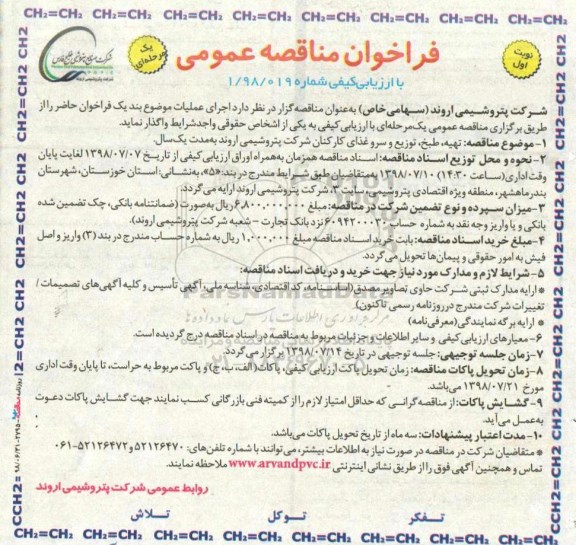 CH2=CH2 CH2=CH2 CH2=CH2 CH2=CH2 CH2=CH2 CH2=CH2 CH2=CH2
نوبت اول
فراخوان مناقصه عمومی
یک مرحله‌ای
با ارزیابی کیفی شماره ۱/۹۸/۰۱۹
شرکت پتروشیمی اروند (سهامی خاص) به‌عنوان مناقصه‌گزار در نظر دارد اجرای عملیات موضوع بند یک فراخوان حاضر را از
طریق برگزاری مناقصه عمومی یک‌مرحله‌ای با ارزیابی کیفی به یکی از اشخاص حقوقی واجدشرایط واگذار نماید.
۱-موضوع مناقصه: تهیه، طبخ، توزیع و سرو غذای کارکنان شرکت پتروشیمی اروند به‌مدت یک‌سال.
۲-نحوه و محل توزیع اسناد مناقصه: اسناد مناقصه همزمان به‌همراه اوراق ارزیابی کیفی از تاریخ ۱۳۹۸/۰۷/۰۷ لغایت پایان
وقت اداری (ساعت ۱۴:۳۰) ۱۳۹۸/۰۷/۱۰ به متقاضیان طبق شرایط مندرج در بند: «۵»، به‌نشانی: استان خوزستان، شهرستان
بندرماهشهر، منطقه ویژه اقتصادی پتروشیمی، سایت ۳، شرکت پتروشیمی اروند ارایه می‌گردد.
۳-میزان سپرده و نوع تضمین شرکت در مناقصه: مبلغ ۶,۸۰۰,۰۰۰,۰۰۰ ریال به‌صورت (ضمانتنامه بانکی، چک تضمین شده
بانکی و یا واریز وجه نقد به شماره حساب ۶۰۹۴۲۳۰۰۰۳۰ نزد بانک تجارت - شعبه شرکت پتروشیمی اروند).
۴-مبلغ خرید اسناد مناقصه: بابت خرید اسناد مناقصه مبلغ ۱,۰۰۰,۰۰۰ ریال به شماره حساب مندرج در بند (۳) واریز و اصل
فیش به امور حقوقی و پیمان‌ها تحویل می‌گردد.
۵-شرایط لازم و مدارک مورد نیاز جهت خرید و دریافت اسناد مناقصه:
* ارایه مدارک ثبتی شرکت حاوی تصاویر مصدق (اساسنامه، کد اقتصادی، شناسه ملی، آگهی تأسیس و کلیه آگهی‌های تصمیمات/
تغییرات شرکت مندرج درروزنامه رسمی تاکنون).
* ارایه برگه نمایندگی (معرفی‌نامه)
۶-معیارهای ارزیابی کیفی و سایر اطلاعات و جزئیات مربوط به مناقصه در اسناد مناقصه درج گردیده است.
۷-زمان جلسه توجیهی: جلسه توجیهی در تاریخ ۱۳۹۸/۰۷/۱۴ برگزار می‌گردد.
۸-زمان تحویل پاکات مناقصه: زمان تحویل پاکت ارزیابی کیفی، پاکات (الف، ب، ج) و پاکت مربوط به حراست، تا پایان وقت اداری
مورخ ۱۳۹۸/۰۷/۲۱ می‌باشد.
۹-گشایش پاکات: از مناقصه‌گرانی که حداقل امتیاز لازم را از کمیته فنی بازرگانی کسب نمایند جهت گشایش پاکات دعوت
به‌عمل می‌آید.
۱۰-مدت اعتبار پیشنهادات: سه ماه از تاریخ تحویل پاکات می‌باشد.
* متقاضیان شرکت در مناقصه در صورت نیاز به اطلاعات بیشتر، می‌توانند با شماره تلفن‌های: ۵۲۱۲۶۴۷۰ و ۵۲۱۲۶۴۷۲-۰۶۱
تماس و همچنین آگهی فوق را از طریق نشانی اینترنتی www.arvandpvc.ir ملاحظه نمایند.
روابط عمومی شرکت پتروشیمی اروند
تفکر توکل تلاش
CH2=CH2 CH2=CH2 CH2=CH2 CH2=CH2 CH2=CH2 CH2=CH2 CH2=CH2